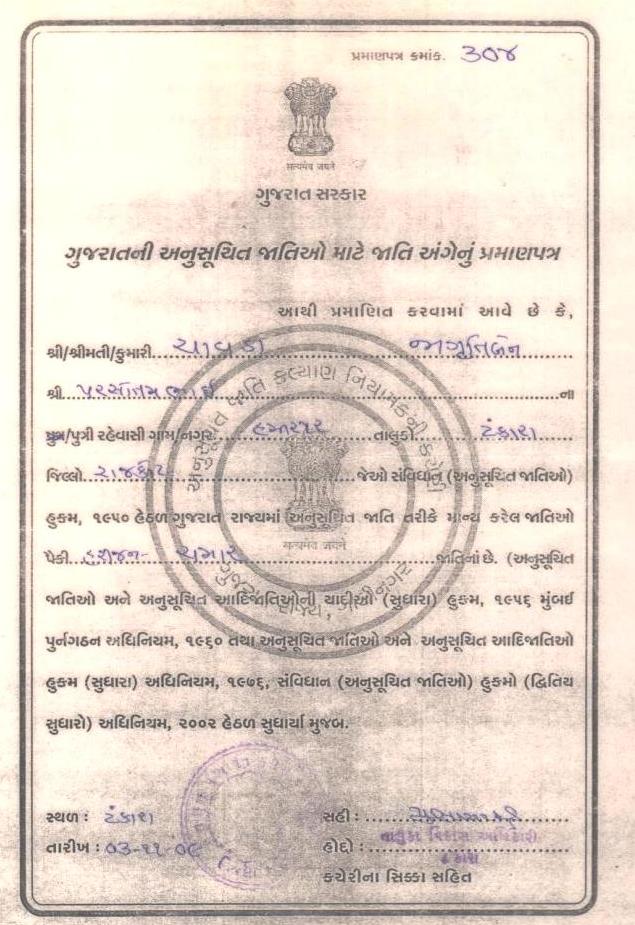 પ્રમાણપત્ર ક્રમાંક. ૩૦૪
सत्यमेव जयते
ગુજરાત સરકાર
ગુજરાતની અનુસૂચિત જાતિઓ માટે જાતિ અંગેનું પ્રમાણપત્ર
આથી પ્રમાણિત કરવામાં આવે છે કે,
શ્રી/શ્રીમતી/કુમારી ચાવડા જાગૃતિબેન
શ્રી પરસોતમભાઈ ના
પુત્ર/પુત્રી રહેવાસી ગામ/નગર તાલુકો ટંકારા
જિલ્લો રાજકોટ જેઓ સંવિધાન (અનુસૂચિત જાતિઓ)
હુકમ, ૧૯૫૦ હેઠળ ગુજરાત રાજ્યમાં અનુસૂચિત જાતિ તરીકે માન્ય કરેલ જાતિઓ
પૈકી હરીજન- ચમાર જાતિનાં છે. (અનુસૂચિત
જાતિઓ અને અનુસૂચિત આદિજાતિઓની યાદીઓ (સુધારા) હુકમ, ૧૯૫૬ મુંબઈ
પુર્નગઠન અધિનિયમ, ૧૯૬૦ તથા અનુસૂચિત જાતિઓ અને અનુસૂચિત આદિજાતિઓ
હુકમ (સુધારા) અધિનિયમ, ૧૯૭૬, સંવિધાન (અનુસૂચિત જાતિઓ) હુકમો (દ્વિતિય
સુધારો) અધિનિયમ, ૨૦૦૨ હેઠળ સુધાર્યા મુજબ.
અનુસૂચિત જાતિ કલ્યાણ નિયામકની કચેરી
सत्यमेव जयते
ગુજરાત રાજ્ય, ગાંધીનગર
સ્થળ : ટંકારા
સહી :
તાલુકા વિકાસ અધિકારી
તારીખ : 03-11-0૯
હોદ્દો :
ટંકારા
કચેરીના સિક્કા સહિત